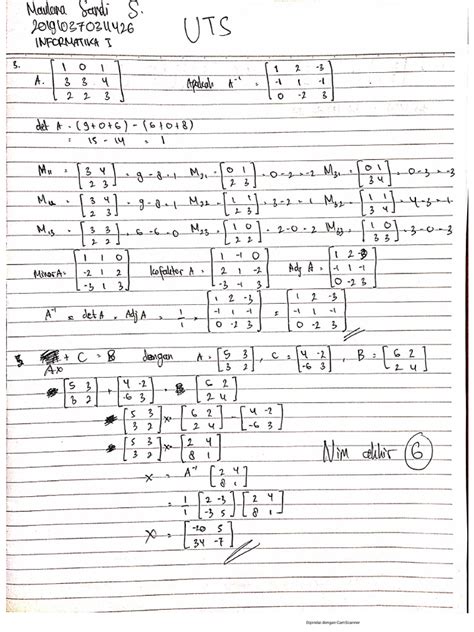 Maulana Sandi S.
201910370311426
INFORMATIKA I
UTS
3.
A = [1 0 1; 3 3 4; 2 2 3] Apakah A⁻¹ = [1 2 -3; -1 1 -1; 0 -2 3]
det A = (9+0+6) - (6+0+8)
= 15 - 14 = 1
M₁₁ = [3 4; 2 3] = 9-8=1 M₂₁ = [0 1; 2 3] = 0-2=-2 M₃₁ = [0 1; 3 4] = 0-3=-3
= [3 4; 2 3] = 9-8=1 M₂₂ = [1 1; 2 3] = 3-2=1 M₃₂ = [1 1; 3 4] = 4-3=1
M₁₃ = [3 3; 2 2] = 6-6=0 M₂₃ = [1 0; 2 2] = 2-0=2 M₃₃ = [1 0; 3 3] = 3-0=3
Minor A = [1 1 0; -2 1 2; -3 1 3] kofaktor A = [1 -1 0; 2 1 -2; -3 -1 3] Adj A = [1 2 -3; -1 1 -1; 0 -2 3]
A⁻¹ = det A . Adj A = 1/1 [1 2 -3; -1 1 -1; 0 -2 3] = [1 2 -3; -1 1 -1; 0 -2 3]
+ C = B dengan A = [5 3; 3 2], C = [4 -2; -6 3], B = [6 2; 2 4]
[5 3; 3 2] + [4 -2; -6 3] = [6 2; 2 4]
[5 3; 3 2] x = [6 2; 2 4] - [4 -2; -6 3]
[5 3; 3 2] x = [2 4; 8 1]
Nim akhir 6
x = A⁻¹ [2 4; 8 1]
= 1/1 [2 -3; -3 5] [2 4; 8 1]
x = [-20 5; 34 -7]
Dipindai dengan CamScanner